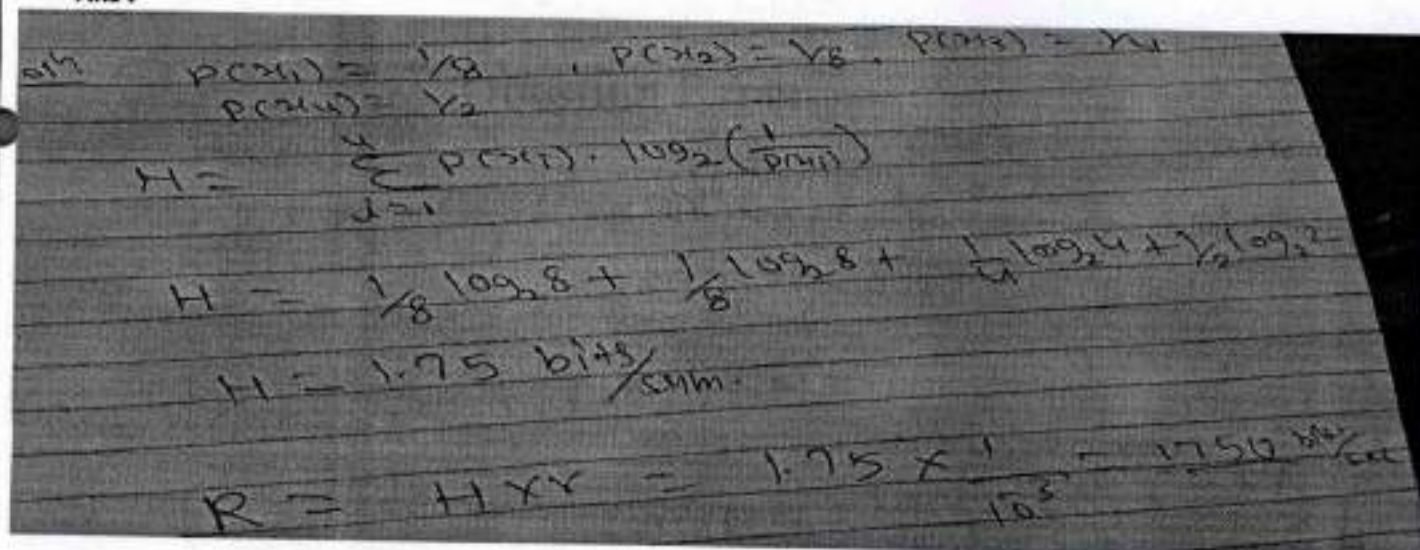 soln P(x1) = 1/8 , P(x2) = 1/8 , P(x3) = 1/4
P(x4) = 1/2
H = 4 Σ i=1 P(xi) . log2 (1/P(xi))
H = 1/8 log2 8 + 1/8 log2 8 + 1/4 log2 4 + 1/2 log2 2
H = 1.75 bits/sym.
R = H x r = 1.75 x 1/10^-3 = 1750 bits/sec